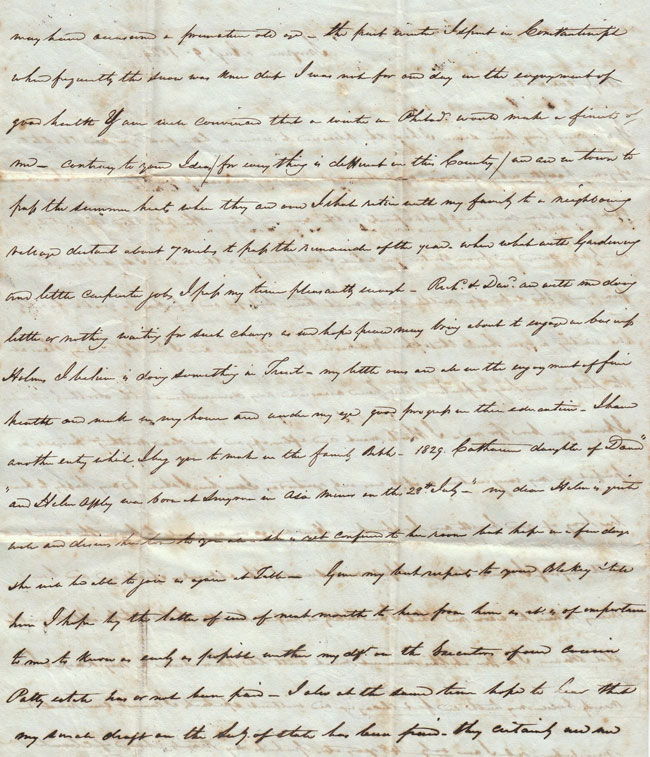 may have occasioned a premature old age – the first winter I spent in Constantinople
when frequently the snow was knee deep I was not for one day in the enjoyment of
good health & am well convinced that a winter in Philad.a would make a finish of
me – contrary to your Idea / for every thing is different in this Country / we are in town to
pass the summer heats, when they are over I shall retire with my family to a neighbouring
village distant about 7 miles to pass the remainder of the year – where what with Gardening
and little carpenter jobs, I pass my time pleasantly enough – Rich.d & Dav.d are with me doing
little or nothing waiting for such changes as we hope peace may bring about to engage in business
Holmes I believe is doing something in Trieste – my little ones are all in the enjoyment of fine
health and make in my house and under my eye good progress in their education – I have
another entry which I beg you to make in the family Bible – "1829. Catharine daughter of David"
"and Helen Offley was born at Smyrna in Asia Minor on the 28th July –" my dear Helen is quite
well and desires her love to you all – she is yet confined to her room but hope in a few days
she will be able to join us again at Table – Give my best respects to your Blakey & tell
him I hope by the latter of end of next month to hear from him as it is of importance
to me to know as early as possible whether my dft. on the Executors of our Cousin
Patty estate has or not been paid – I also at the same time hope to hear that
my small draft on the Secy. of State has been paid – they certainly owe me